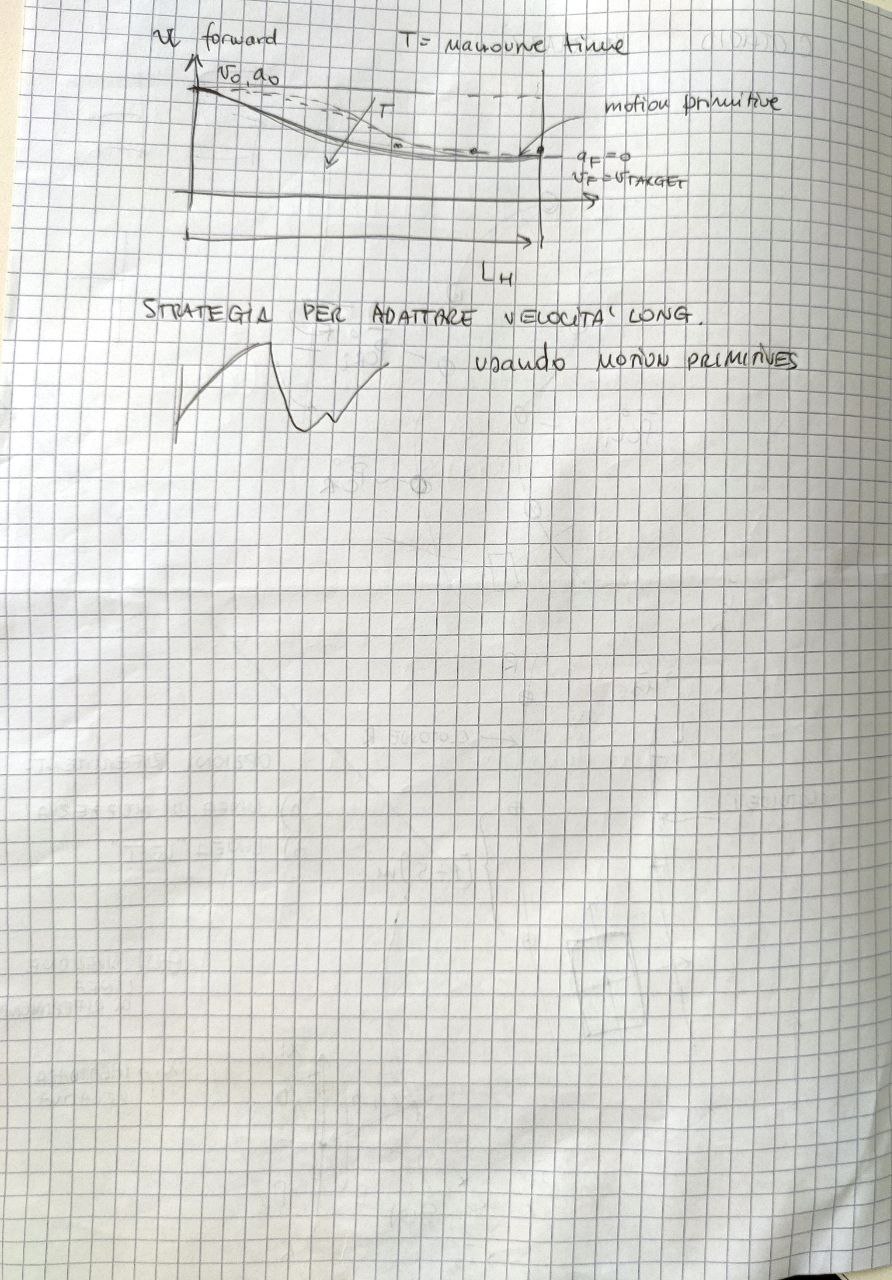 u forward
T = manouvre time
v₀, a₀
T
motion primitive
a_F = 0
v_F = v_TARGET
L_H
STRATEGIA PER ADATTARE VELOCITA' LONG.
usando MOTION PRIMITIVES